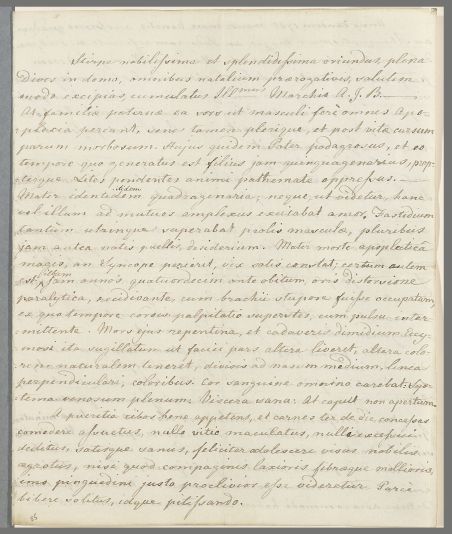 Stirpe nobilissima et splendidissima oriundus, plena
Divos in domo, omnibus natalium prærogativis, salutem
modo excipias, cumulatus Ill^mus Marchio A. J. B.
At familiæ paternæ ea sors ut masculi ferè omnes Apo-
plexia pereant, senes tamen plerique, et post vitæ cursum
parum morbosum. Hujus quidem Pater podagrosus, et eo
tempore quo generatus est filius jam quinquagenarius, prop-
terque Lites pendentes animi pathemate oppressus.
Mater identidem quadragenaria; neque, ut videtur, hanc
vel illum ad mutuos amplexus excitabat amor, Fastidium
tantùm utcunque superabat prolis masculæ, pluribus
jam antea natis puellis, desiderium. Mater morte apoplecticâ
magis, an Syncope perierit, vix satis constat; certum autem
est jam annos quatuordecim ante obitum, oris distorsione
paralytica, excidivante, cum brachii stupore fuisse occupatam,
ex quo tempore cordis palpitatio superstes, cum pulsu inter
mittente. Mors ejus repentina, et cadaveris dimidium Ecchy-
mosi ita sugillatum ut faciei pars altera liveret, altera colo-
rem naturalem teneret, divisis ad nasum medium, linea
perpendiculari, coloribus. Cor sanguine omnino carebat. Sys-
tema venosum plenum. Viscera sana. At caput non apertum.
A pueritia cibos bene appetens, et carnes ter de die concessas
comedere assuetus, nullo vitio maculatus, nulli excessui
deditus, satisque sanus, feliciter adolescere visus nobilis
ægrotus, nisi quòd compaginis laxioris fibræque mollioris,
imo pinguedini justo proclivior esse videretur Parcè
bibere solitus, idque pitissando.
86